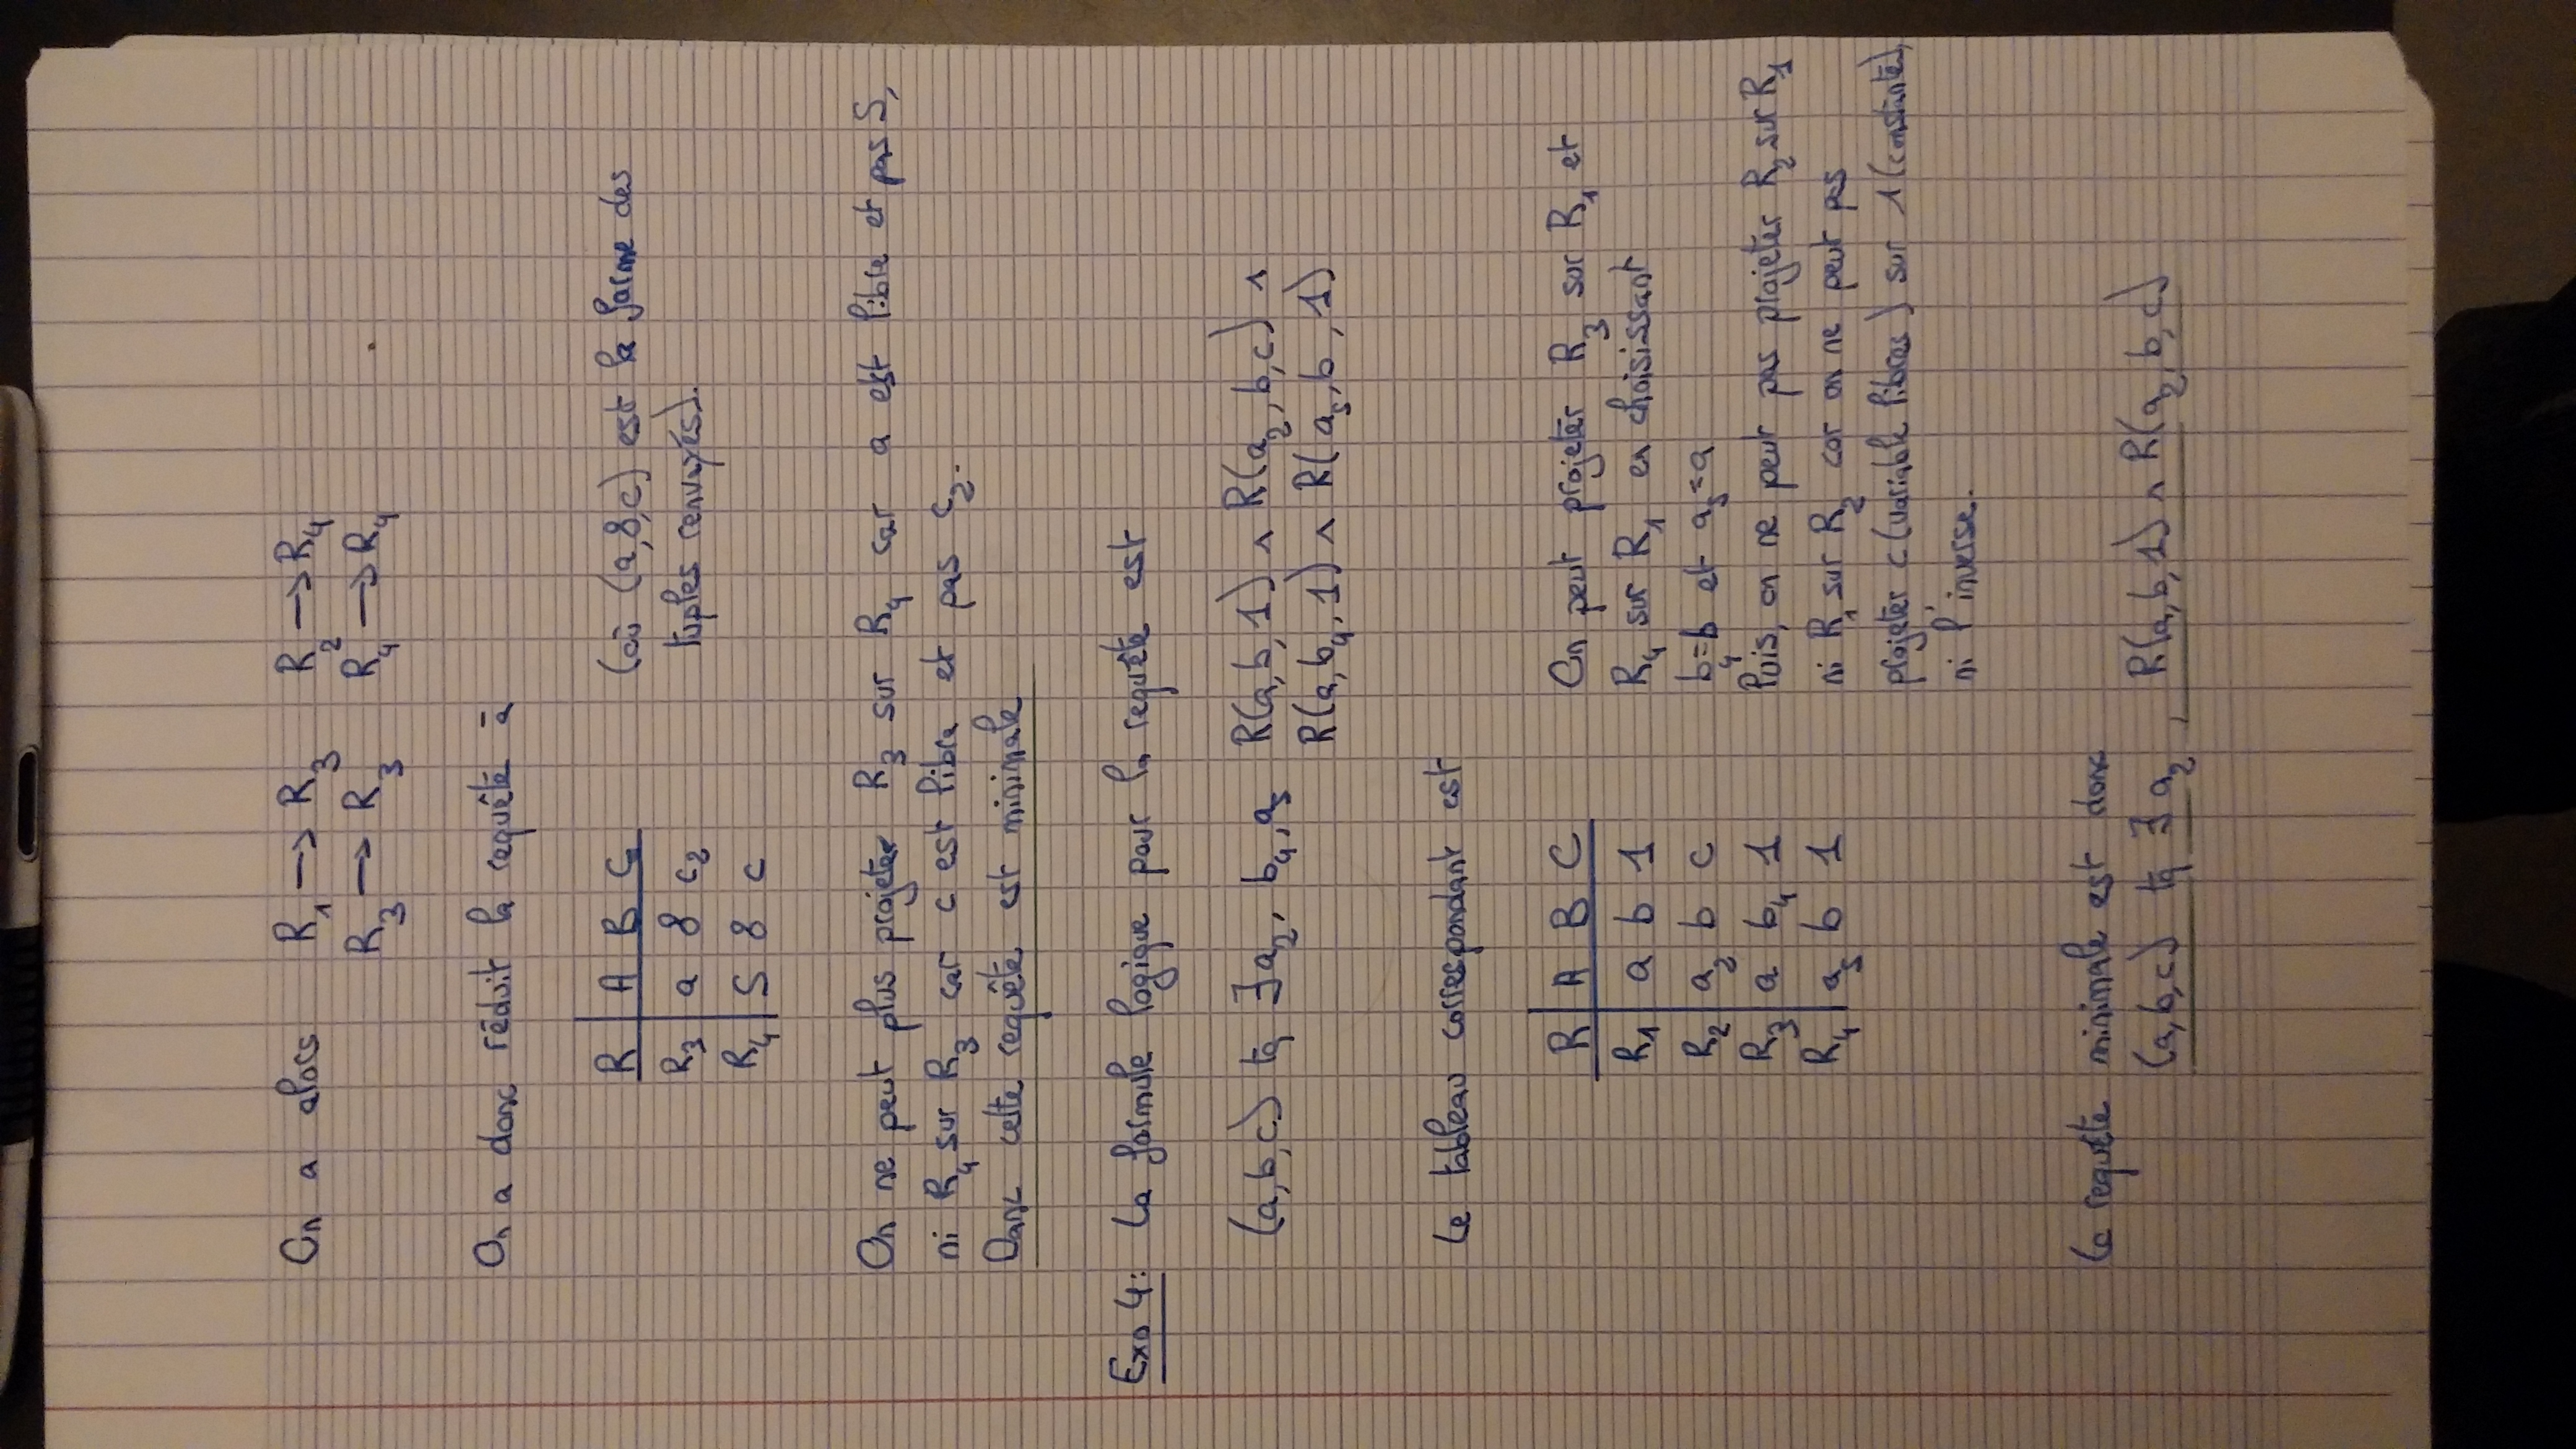 On a alors R₁ → R₃ R₂ → R₄
R₃ → R₃ R₄ → R₄
On a donc réduit la requête à
R | A B C (où (a,8,c) est la forme des
R₃ | a 8 c₂ tuples renvoyés).
R₄ | 5 8 c
On ne peut plus projeter R₃ sur R₄ car a est libre et pas 5,
ni R₄ sur R₃ car c est libre et pas c₂.
Donc cette requête est minimale
Exo 4: La formule logique pour la requête est
(a,b,c) tq ∃ a₂, b₄, a₅ R(a,b,1) ∧ R(a₂,b,c) ∧
R(a,b₄,1) ∧ R(a₅,b,1)
Le tableau correspondant est
R | A B C On peut projeter R₃ sur R₁ et
R₁ | a b 1 R₄ sur R₁ en choisissant
R₂ | a₂ b c b₄=b et a₅=a
R₃ | a b₄ 1 Puis, on ne peut pas projeter R₂ sur R₁
R₄ | a₅ b 1 ni R₁ sur R₂ car on ne peut pas
projeter c (variable libres) sur 1 (constante),
ni l'inverse.
La requête minimale est donc
(a,b,c) tq ∃ a₂, R(a,b,1) ∧ R(a₂,b,c)